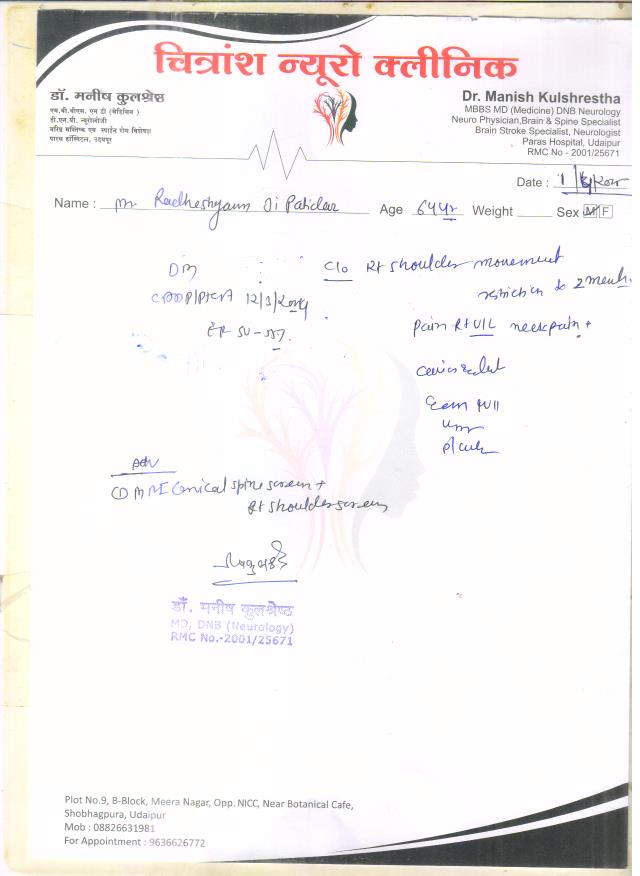 चित्रांश न्यूरो क्लीनिक
डॉ. मनीष कुलश्रेष्ठ
एम.बी.बी.एस. एम डी (मेडिसिन)
डी.एन.बी. न्यूरोलॉजी
वरिष्ठ मस्तिष्क एवं स्पाईन रोग विशेषज्ञ
पारस हॉस्पिटल, उदयपुर
Dr. Manish Kulshrestha
MBBS MD (Medicine) DNB Neurology
Neuro Physician,Brain & Spine Specialist
Brain Stroke Specialist, Neurologist
Paras Hospital, Udaipur
RMC No - 2001/25671
Date :
Name : Mr Radheshyam Ji Patidar Age 64 yr Weight Sex M/F
DM
C/o Rt shoulder movement
restriction 2 month
12/3/2024
Pain Rt U/L neck pain +
Adv
① MRI Cervical spine screen +
Rt shoulder screen
डॉ. मनीष कुलश्रेष्ठ
MD, DNB (Neurology)
RMC No.-2001/25671
Plot No.9, B-Block, Meera Nagar, Opp. NICC, Near Botanical Cafe,
Shobhagpura, Udaipur
Mob : 08826631981
For Appointment : 9636626772